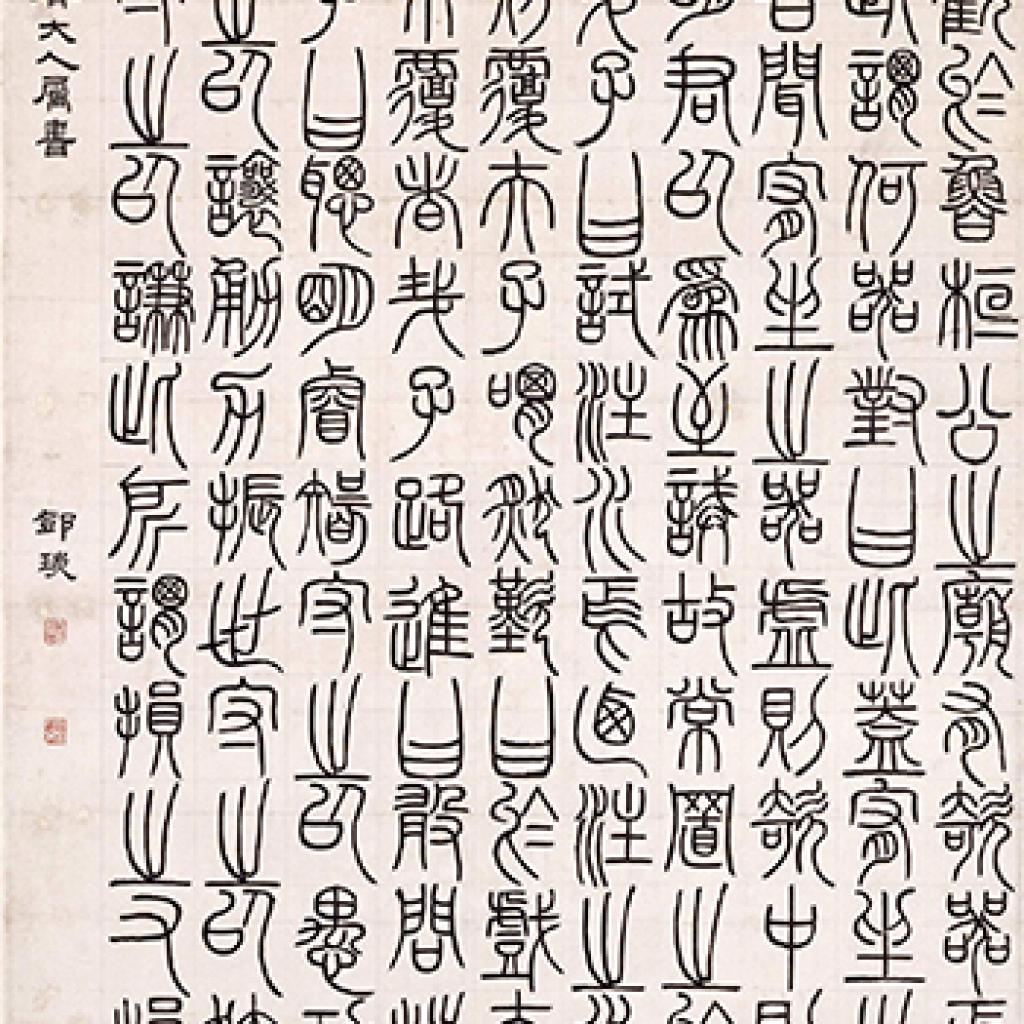 觀於魯桓公之廟有欹器焉
此謂何器對曰此蓋宥坐之
曰聞宥坐之器虛則欹中則
明君以為至誡故常置之於
弟子曰試注水焉乃注之水
則覆夫子喟然歎曰於戲夫
不覆者哉子路進曰敢問持
子曰聰明睿智守之以愚功
之以讓勇力振世守之以怯
守之以謙此所謂損之又損
大人屬書 鄧琰